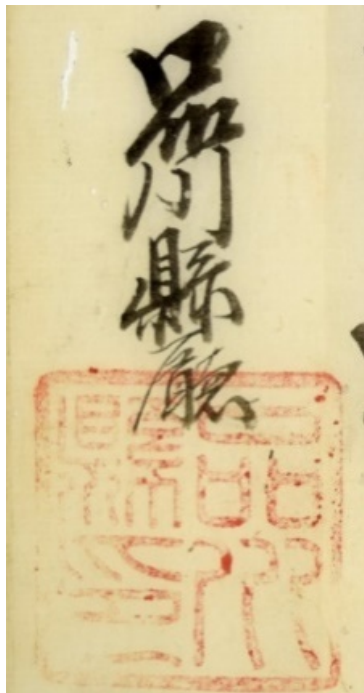 品川縣廳
品川
縣印